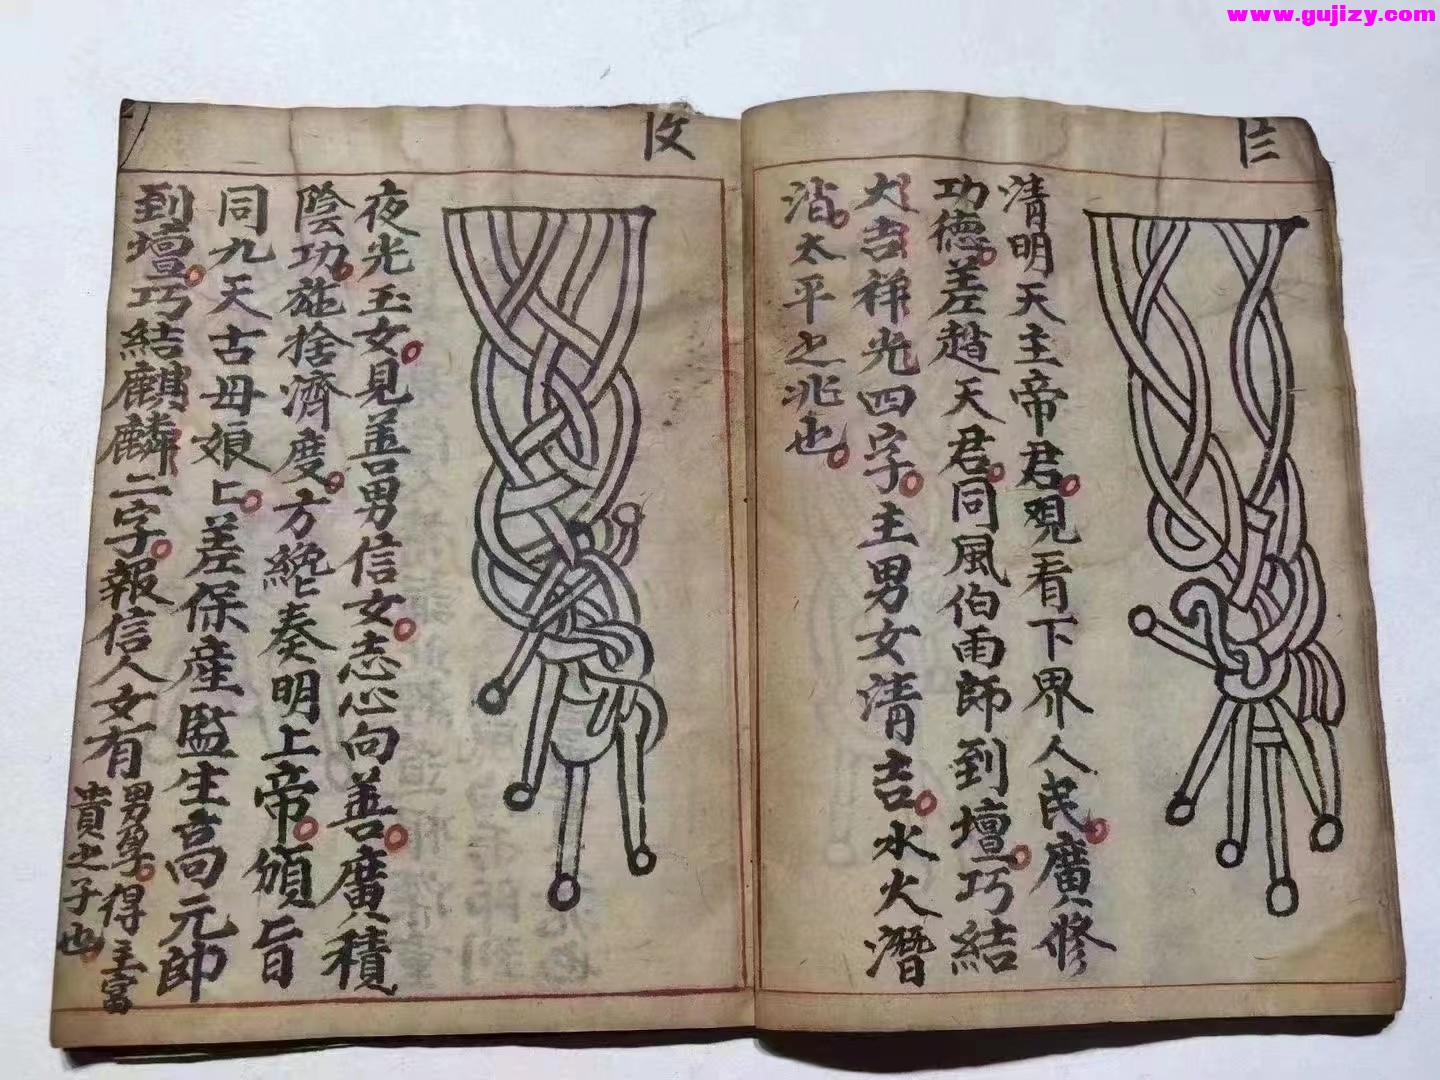 www.gujizy.com
清明天主帝君觀看下界人民廣修
功德差趙天君同風伯雨師到壇巧結
大吉祥光四字主男女清吉水火潛
消太平之兆也
夜光玉女見善男信女志心向善廣積
陰功施捨濟度方纔奏明上帝頒旨
同九天古母娘娘差保產監生高元帥
到壇巧結麒麟二字報信人女有
男孕得主富
貴之子也